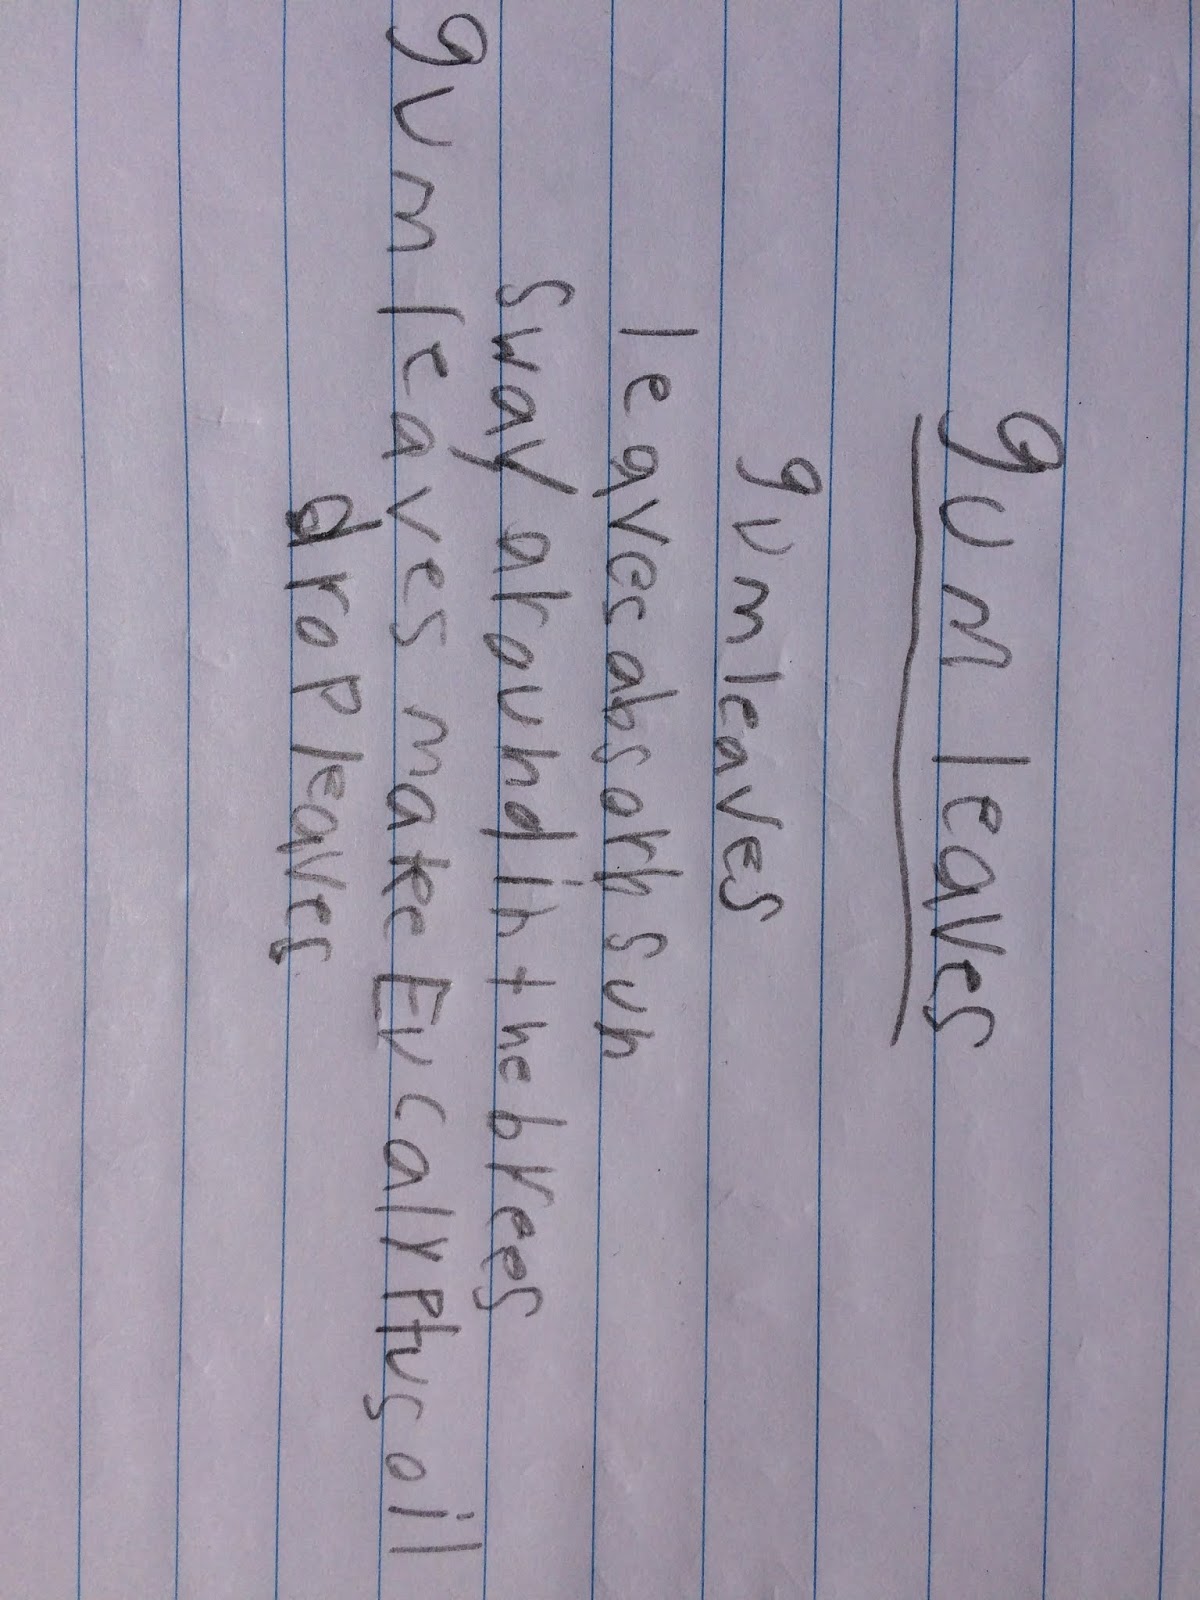 gum leaves
gum leaves
leaves absorb sun
sway around in the brees
gum leaves make Eucalyptus oil
drop leaves